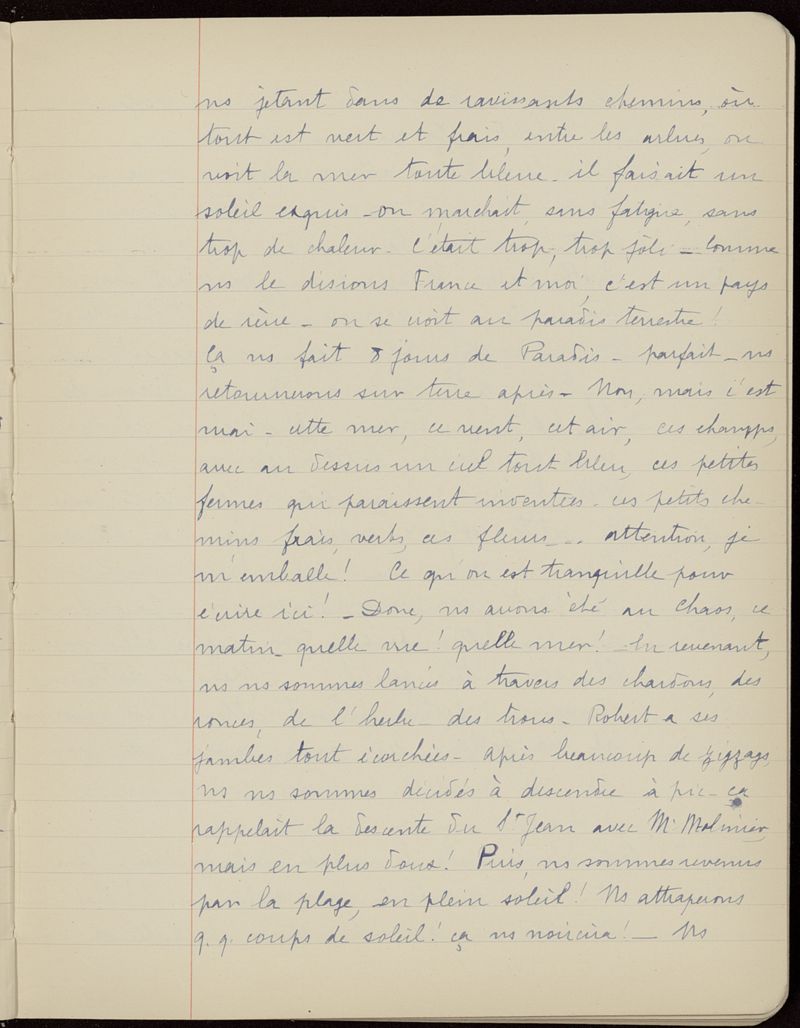 ns jetant dans de ravissants chemins, où
tout est vert et frais, entre les arbres, on
voit la mer toute bleue - il faisait un
soleil exquis - on marchait, sans fatigue, sans
trop de chaleur - C'était trop, trop joli - Comme
ns le disions France et moi, c'est un pays
de rêve - on se croit au paradis terrestre !
Ça ns fait 8 jours de Paradis - parfait - ns
retournerons sur terre après - Non, mais c'est
vrai - cette mer, ce vent, cet air, ces champs,
avec au dessus un ciel tout bleu, ces petites
fermes qui paraissent inventées - ces petits che-
mins frais, verts, ces fleurs... attention, je
m'emballe ! Ce qu'on est tranquille pour
écrire ici ! - Donc, ns avons été au Chaos, ce
matin - quelle vue ! quelle mer ! - En revenant,
ns ns sommes lancés à travers des chardons, des
ronces, de l'herbe - des trous - Robert a ses
jambes tout écorchées - après beaucoup de zigzags,
ns ns sommes décidés à descendre à pic - ça
rappelait la descente du St Jean avec Mr Molinier,
mais en plus doux ! Puis, ns sommes revenus
par la plage, en plein soleil ! Ns attraperons
q. q. coups de soleil ! ça ns noircira ! - Ns